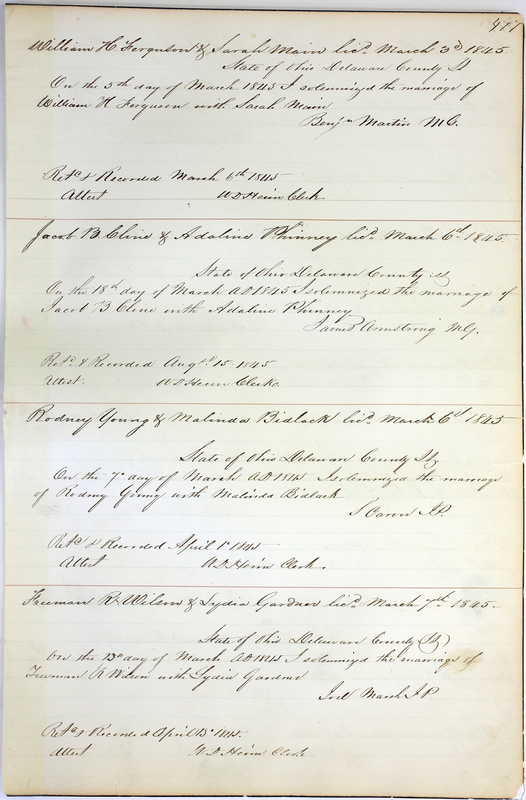 477
William H Ferguson & Sarah Main licd. March 3d 1845.
State of Ohio Delaware County SS
On the 5th day of March 1845 I solemnized the marriage of
William H Ferguson with Sarah Main
Benjn Martin M.G.
Retd & Recorded March 6th 1845
Attest W D Heim Clerk
Jacob B Cline & Adaline Phinney licd. March 6d. 1845.
State of Ohio Delaware County SS
On the 18th day of March AD 1845 I solemnized the marriage of
Jacob B Cline with Adaline Phinney
James Armstrong M.G.
Retd & Recorded Augst 15 1845
Attest. W D Heim Clerk.
Rodney Young & Malinda Bidlack licd. March 6d 1845
State of Ohio Delaware County SS
On the 7th day of March AD 1845 I solemnized the marriage
of Rodney Young with Malinda Bidlack
S J.P.
Retd & Recorded April 1st 1845
Attest W D Heim Clerk.
Freeman R Wilson & Lydia Gardner licd. March 7th 1845.
State of Ohio Delaware County SS
On the 13th day of March AD 1845 I solemnized the marriage of
Freeman R Wilson with Lydia Gardner
Joel Marsh J.P
Retd & Recorded April 1845.
Attest W D Heim Clerk